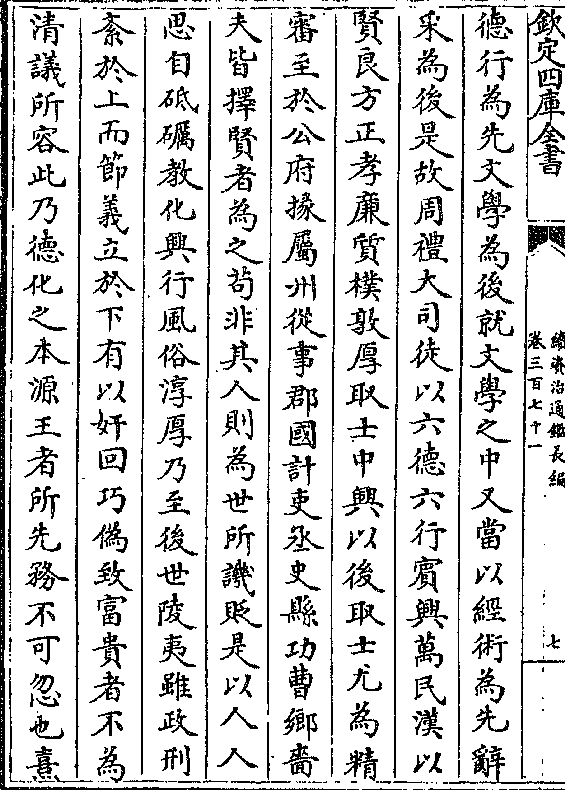 欽定四庫全書
續資治通鑑長編
卷三百七十一
七
德行為先文學為後就文學之中又當以經術為先辭
采為後是故周禮大司徒以六德六行賓興萬民漢以
賢良方正孝廉質樸敦厚取士中興以後取士尤為精
審至於公府掾屬州從事郡國計吏丞史縣功曹鄉嗇
夫皆擇賢者為之苟非其人則為世所譏貶是以人人
思自砥礪教化興行風俗淳厚乃至後世陵夷雖政刑
紊於上而節義立於下有以奸回巧偽致富貴者不為
清議所容此乃德化之本源王者所先務不可忽也熹